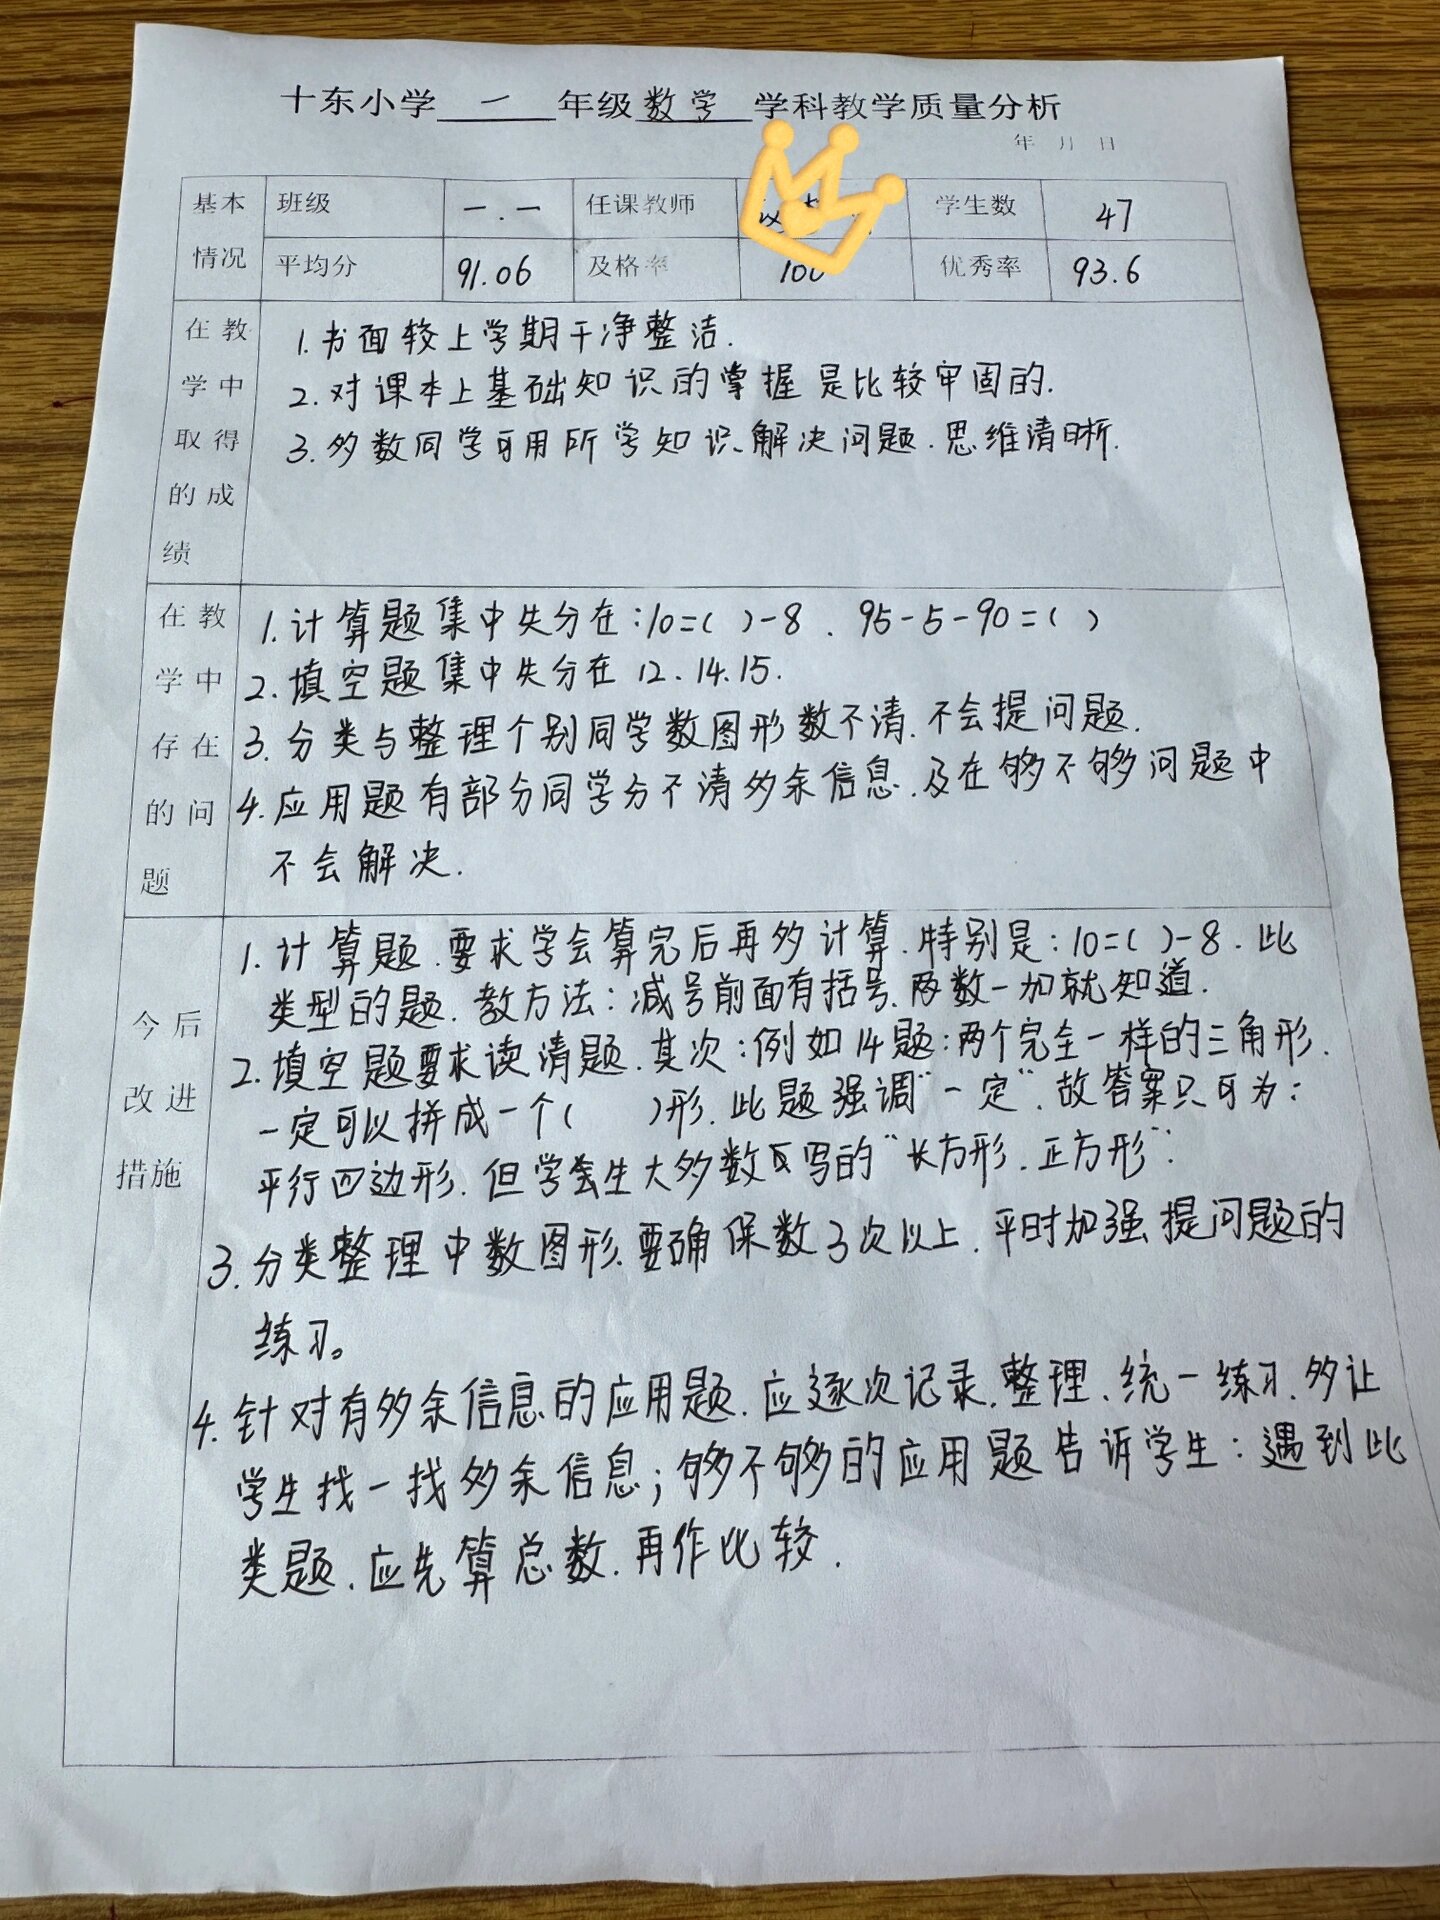 十东小学 一 年级 数学 学科教学质量分析
年 月 日
基本情况 班级 一.一 任课教师 学生数 47
平均分 91.06 及格率 100 优秀率 93.6
在教学中取得的成绩
1.书面较上学期干净整洁.
2.对课本上基础知识的掌握是比较牢固的.
3.多数同学可用所学知识解决问题.思维清晰.
在教学中存在的问题
1.计算题集中失分在:10=( )-8 . 95-5-90=( )
2.填空题集中失分在12.14.15.
3.分类与整理个别同学数图形数不清.不会提问题.
4.应用题有部分同学分不清多余信息.及在够不够问题中
不会解决.
今后改进措施
1.计算题.要求学会算完后再多计算.特别是:10=( )-8.此
类型的题.教方法:减号前面有括号.两数一加就知道.
2.填空题要求读清题.其次:例如14题:两个完全一样的三角形.
一定可以拼成一个( )形.此题强调"一定".故答案只可为:
平行四边形.但学生大多数写的"长方形.正方形".
3.分类整理中数图形.要确保数3次以上.平时加强提问题的
练习。
4.针对有多余信息的应用题.应逐次记录.整理、统一练习.多让
学生找一找多余信息;够不够的应用题告诉学生:遇到此
类题.应先算总数.再作比较.